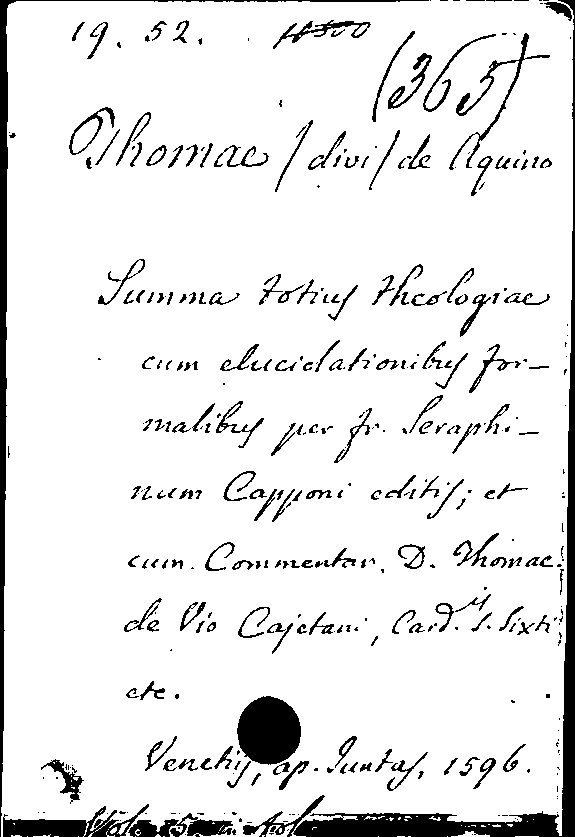 19. 52.
(365)
Thomae / divi / de Aquino
Summa totius theologiae
cum elucidationibus for-
malibus per fr. Seraphi-
num Capponi editis; et
cum Commentar. D. Thomae
de Vio Cajetani, Card. is S. Sixti
etc.
Venetiis, ap. Juntas, 1596.
Vol. 5 in fol